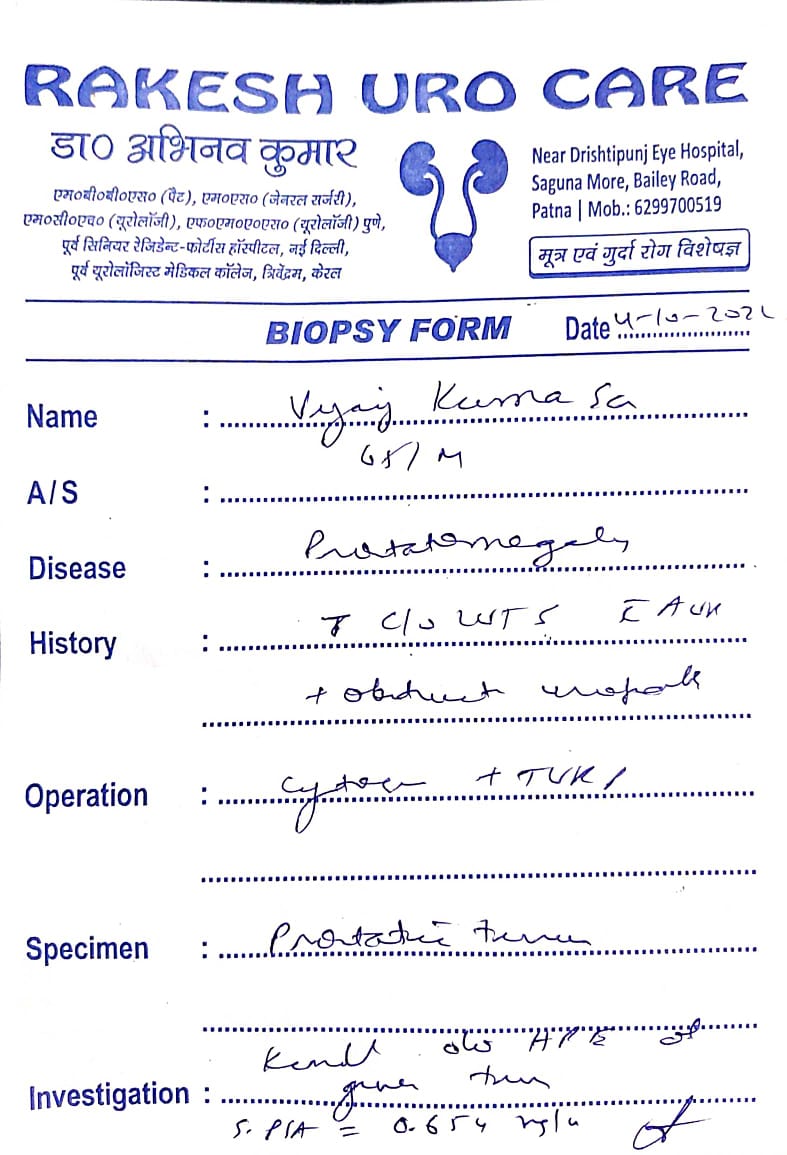 RAKESH URO CARE
डा० अभिनव कुमार
एम०बी०बी०एस० (पैट), एम०एस० (जेनरल सर्जरी),
एम०सी०एच० (यूरोलॉजी), एफ०एम०ए०एस० (यूरोलॉजी) पुणे,
पूर्व सिनियर रेजिडेन्ट-फोर्टीस हॉस्पीटल, नई दिल्ली,
पूर्व यूरोलॉजिस्ट मेडिकल कॉलेज, त्रिवेंद्रम, केरल
Near Drishtipunj Eye Hospital,
Saguna More, Bailey Road,
Patna | Mob.: 6299700519
मूत्र एवं गुर्दा रोग विशेषज्ञ
BIOPSY FORM Date
Name : Vijay Kumar
A/S : M
Disease : Prostatomegaly
History : c/o LUTS AUR
+
Operation : + TURP
Specimen : Prostatic
HPE of
Investigation :
S. PSA = 0.654